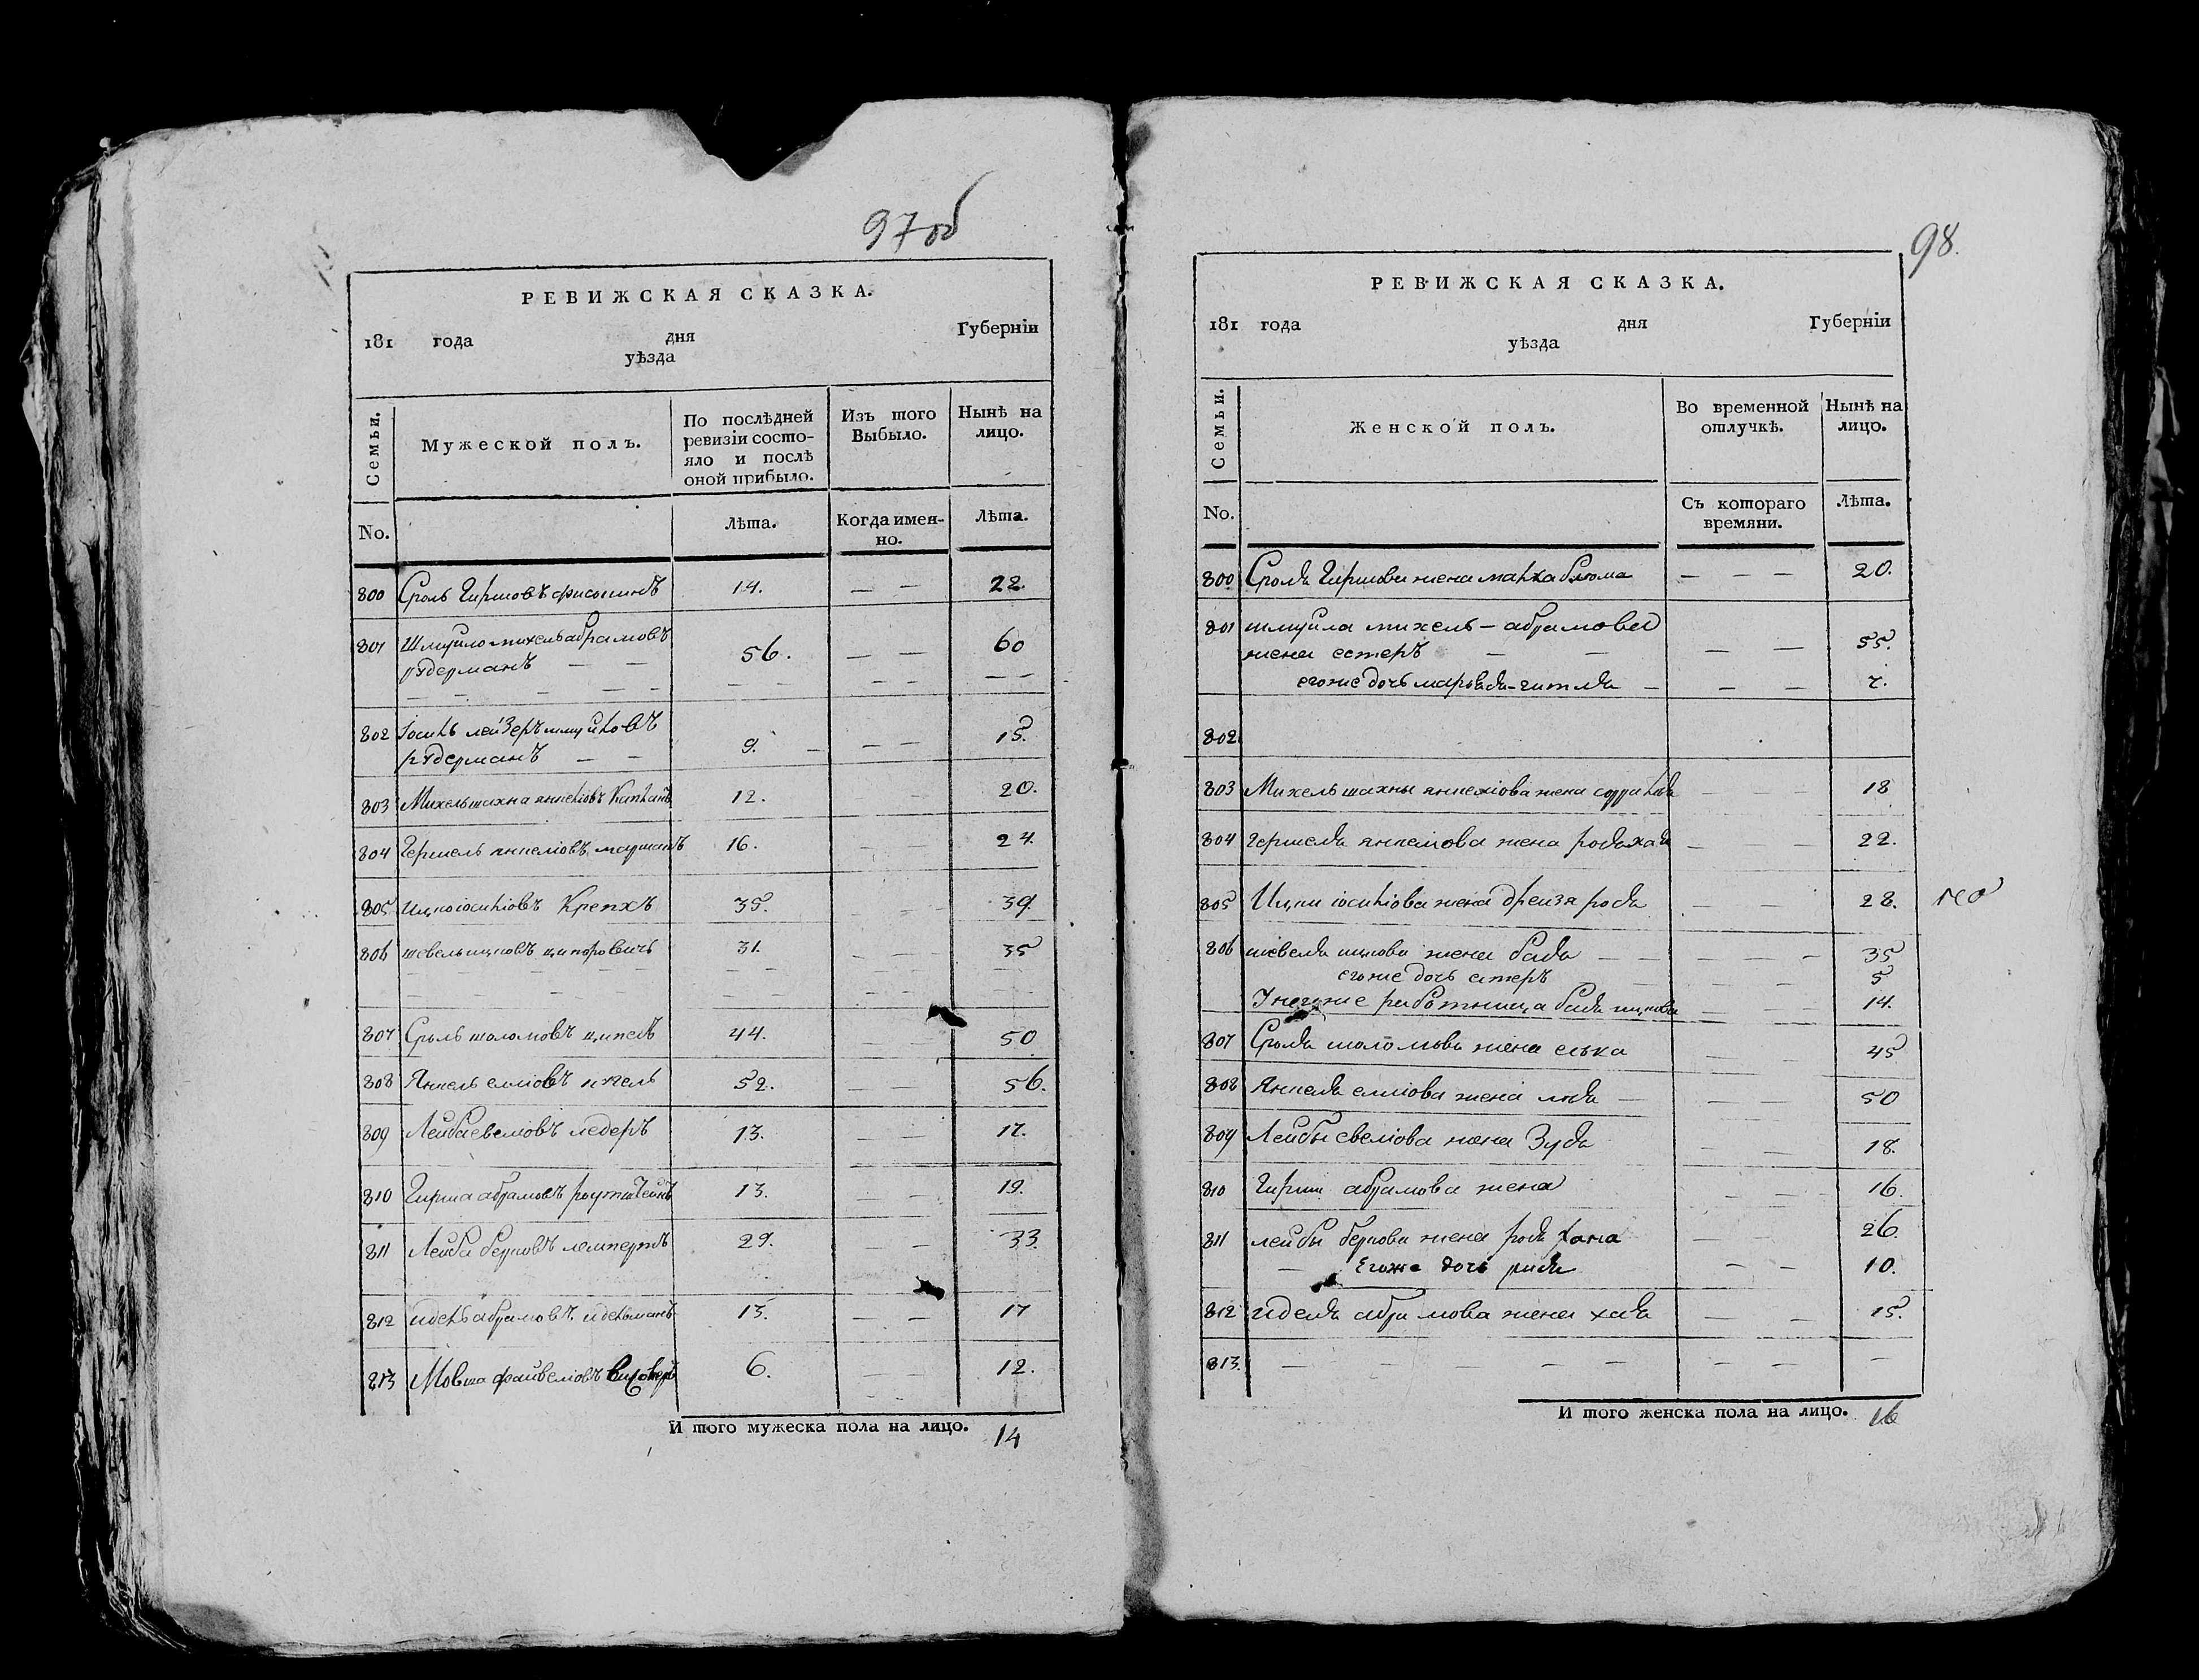 97 об
РЕВИЖСКАЯ СКАЗКА.
181 года дня Губерніи
уѣзда
Семьи.
Мужеской полъ.
По послѣдней ревизіи состо-
яло и послѣ
оной прибыло.
Изъ того
Выбыло.
Нынѣ на
лицо.
No.
Лѣта.
Когда имен-
но.
Лѣта.
800 Сроль Гиршовъ 14. — — 22
801 Шмуйло михель абрамовъ
рѣдерманъ — — 56. — — 60
802 Іосиль лейзеръ шмуйловъ
рѣдерманъ — — 9. — — — 15.
803 Михель шахна янкеліовъ Капланъ 12. — — 20.
804 Гершель янкеліовъ 16. — — 24.
805 Ицко іосиліовъ Крепхъ 35. — 39.
806 шевель ицковъ ципоровичъ 31. — — — 35
807 Сроль шоломовъ 44. — — 50
808 Янкель елліовъ 52. — — 56.
809 Лейба евеліовъ ледеръ 13. — — 17.
810 Гирша абрамовъ 13. — — 19.
811 Лейба берковъ лемпертъ 29. — — 33.
812 идель абрамовъ идельманъ 13. — — 17
813 Мовша файвеліовъ 6. — — 12.
И того мужеска пола на лицо. 14
98.
РЕВИЖСКАЯ СКАЗКА.
181 года дня Губерніи
уѣзда
Семьи.
Женской полъ.
Во временной
отлучкѣ.
Нынѣ на
лицо.
No.
Съ котораго
времяни.
Лѣта.
800 Сроля Гиршова жена малка блюма — — — 20.
801 шмуйла михель — абрамова
жена естеръ — — — — 55.
егоже дочь марьяся-гитля — — — 7.
802.
803 Михель шахны янкеліова жена — — 18
804 Гершеля янкеліова жена — — — 22.
805 Ицки іосиліова жена фрейза рося — — 28.
806 шевеля ицкова жена бася — — — — — 35
егоже дочь естеръ — — — 5
У негоже работница бася ицкова — — — 14.
807 Сроля шоломова жена елька — — 45
808 Янкеля елліова жена — — — 50
809 Лейбы евеліова жена Зуся — — 18.
810 Гирши абрамова жена — — 16.
811 лейбы беркова жена рося хана — — 26.
— Егоже дочь — — 10.
812 иделя абрамова жена хая — — 15.
813. — — — — — — —
И того женска пола на лицо. 16